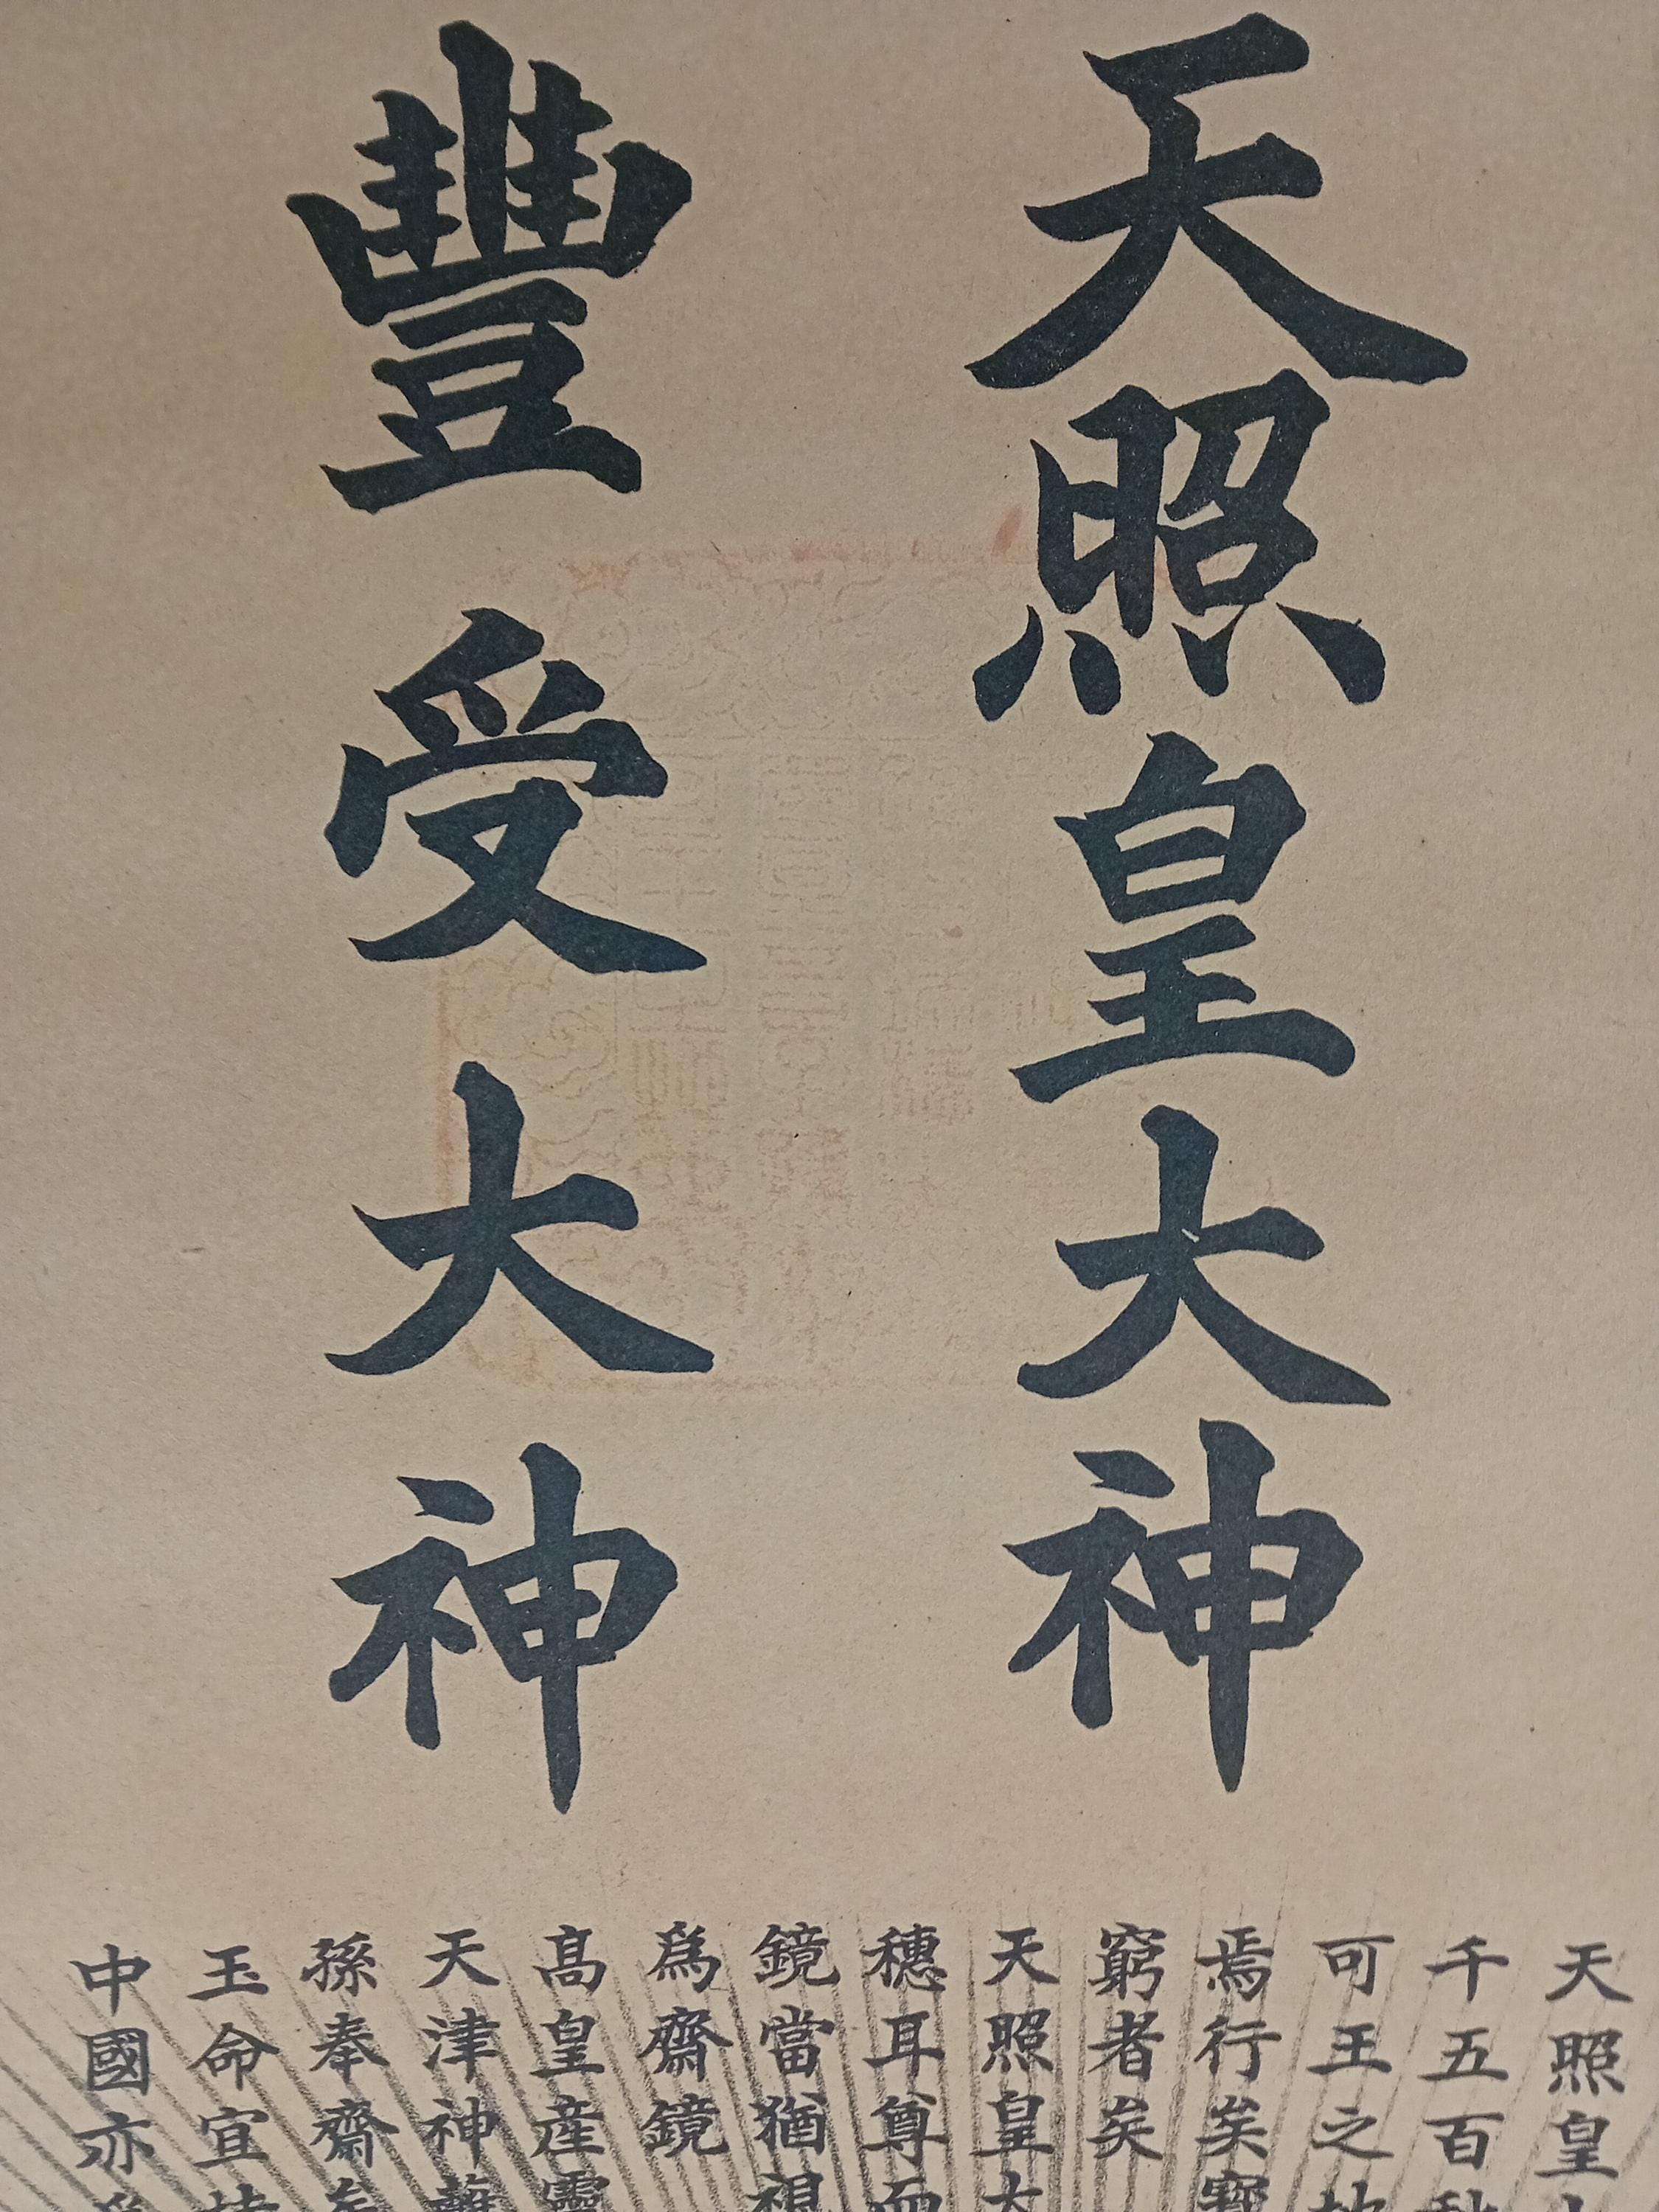 天照皇大神
豐受大神
天照皇
千五百秋
可王之
焉行矣寶
窮者矣
天照皇大
穗耳尊而
鏡當猶視
爲齋鏡
高皇産靈
天津神籬
孫奉齋矣
玉命宜持
中國亦爲